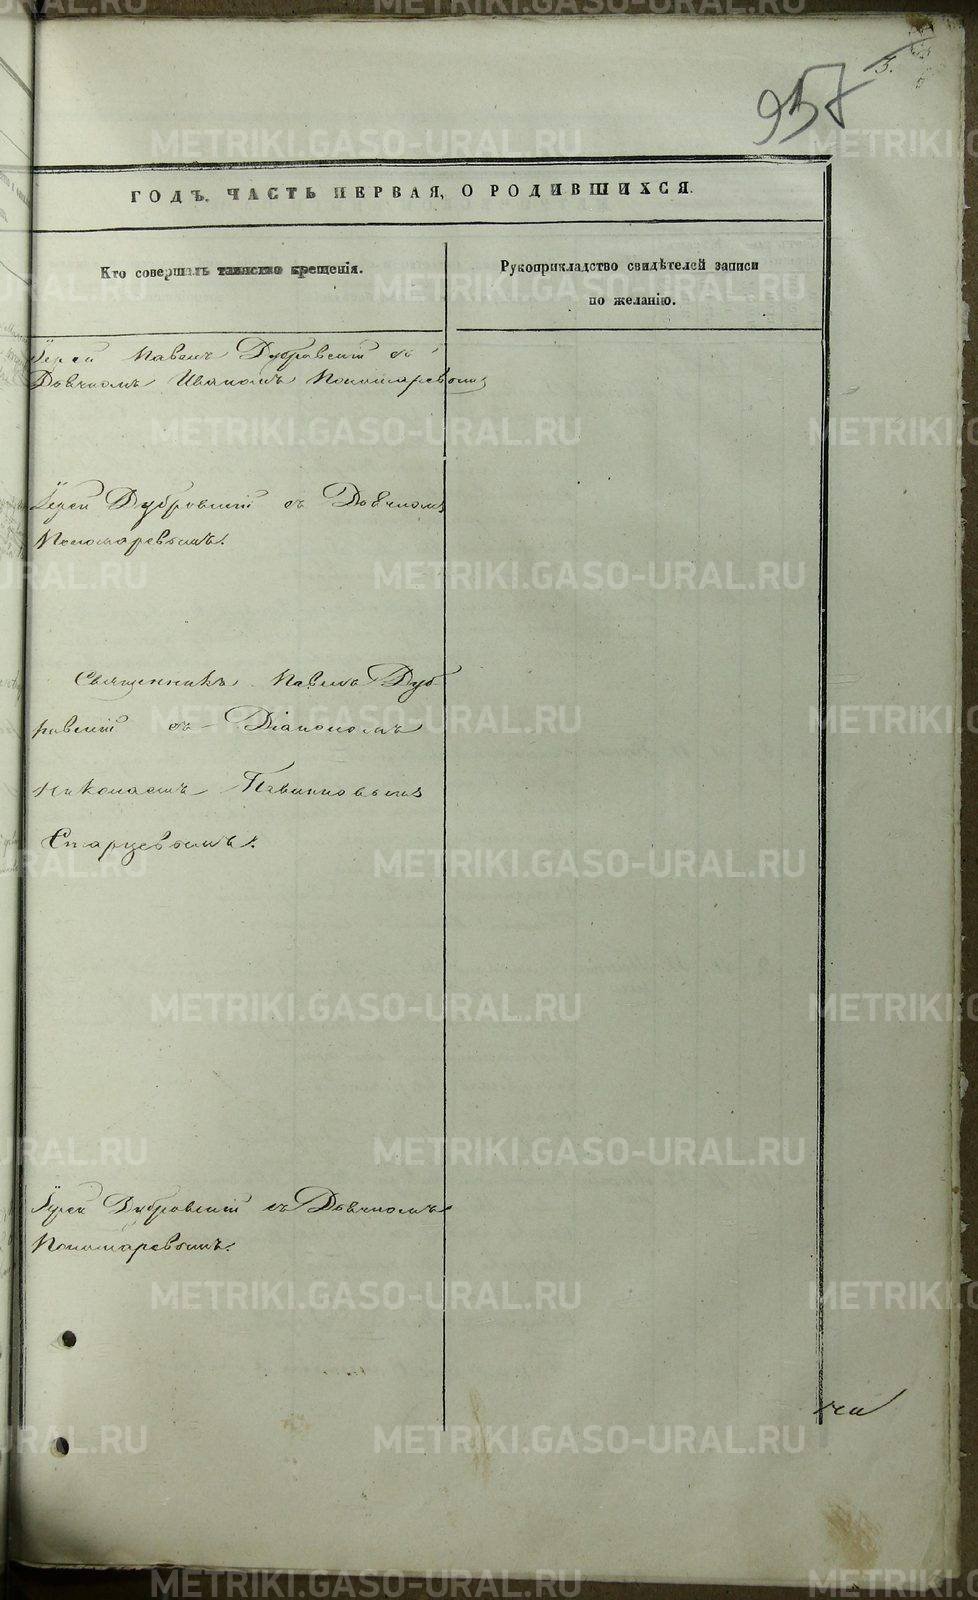 957
3.
ГОДЪ. ЧАСТЬ ПЕРВАЯ, О РОДИВШИХСЯ.
Кто совершалъ таинство крещенія.
Рукоприкладство свидѣтелей записи
по желанію.
Іерей Павелъ Дубровскій съ
Дьячкомъ Иваномъ Пономаревымъ
Іерей Дубровскій съ Дьячкомъ
Пономаревымъ.
Священникъ Павелъ Дуб
ровскій съ Діакономъ
Николаемъ
Старцевымъ.
Іерей Дубровскій съ Дьячкомъ
Пономаревымъ.
METRIKI.GASO-URAL.RU